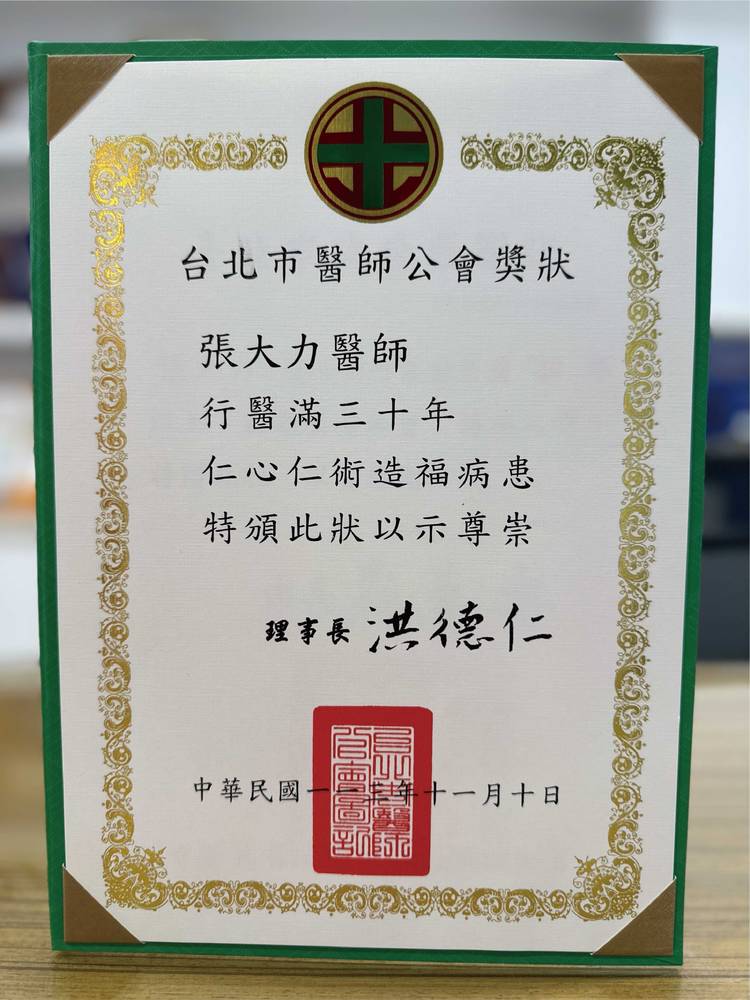 台北市醫師公會獎狀
張大力醫師
行醫滿三十年
仁心仁術造福病患
特頒此狀以示尊崇
理事長 洪德仁
中華民國一一三年十一月十日